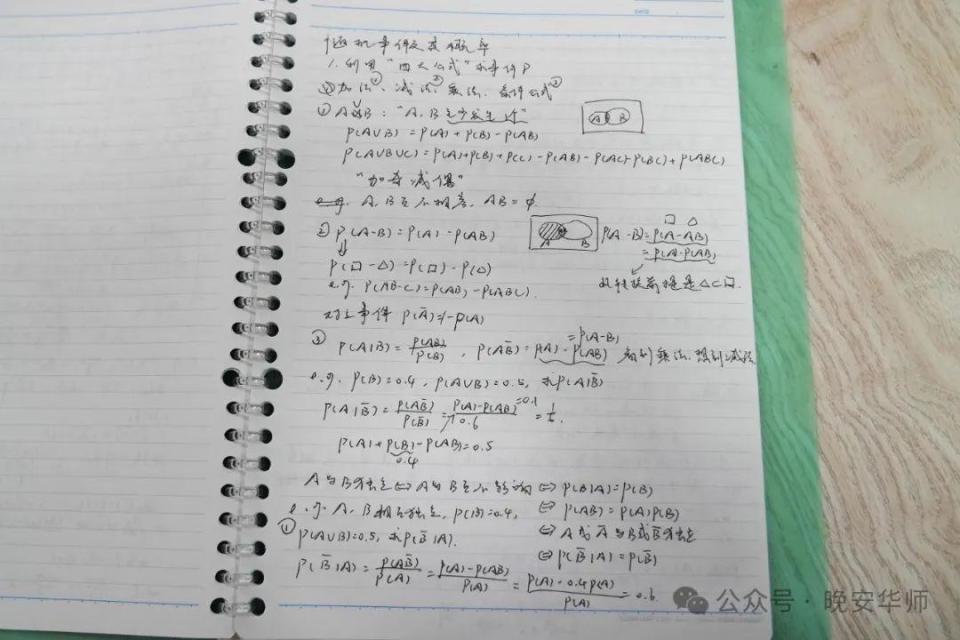 随机事件及其概率
1. 利用“四大公式”求事件P
加法①、减法②、乘法、条件公式③
① A或B："A, B至少发生一个"
P(A∪B) = P(A) + P(B) - P(AB)
P(A∪B∪C) = P(A)+P(B)+P(C) - P(AB) - P(AC) - P(BC) + P(ABC)
"加奇减偶"
e.g. A, B互不相容, AB = φ
② P(A-B) = P(A) - P(AB)
P(A-B) = P(A-AB)
= P(A)-P(AB)
⇓
P(□-△) = P(□) - P(△)
△⊂□.
e.g. P(AB-C) = P(AB) - P(ABC).
对立事件 P(Ā) = 1-P(A)
③ P(A|B) = P(AB)/P(B) , P(AB̄) = P(A) - P(AB) 看到乘法, 想到减法
= P(A-B)
e.g. P(B)=0.4, P(A∪B)=0.5, 求P(A|B̄)
P(A|B̄) = P(AB̄)/P(B̄) = P(A)-P(AB)/0.6 =0.1 = 1/6.
P(A)+P(B)-P(AB)=0.5
0.4
A与B独立 ⇔ A与B互不影响 ⇔ P(B|A)=P(B)
⇔ P(AB) = P(A)P(B)
⇔ A或Ā与B或B̄独立
⇔ P(B̄|A) = P(B̄)
e.g. A, B相互独立, P(B)=0.4,
① P(A∪B)=0.5, 求P(B̄|A).
P(B̄|A) = P(AB̄)/P(A) = P(A)-P(AB)/P(A) = P(A)-0.4P(A)/P(A) = 0.6
公众号·晚安华师